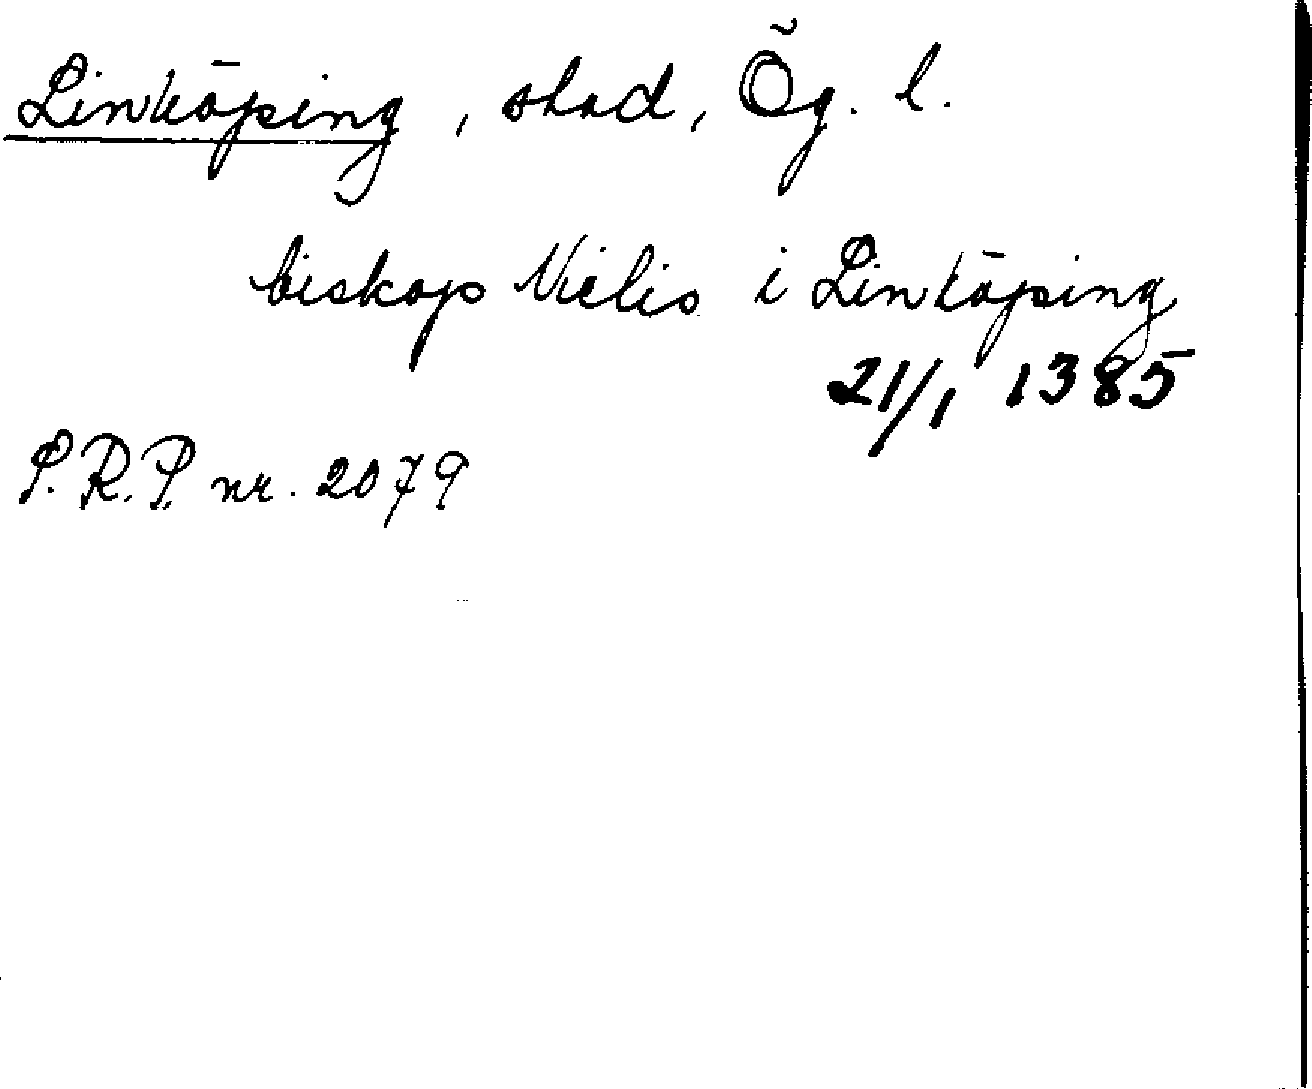 Linköping, stad, Ög. l.
biskop Nielis i Linköping
21/1 1385
P.R.P. nr. 2079